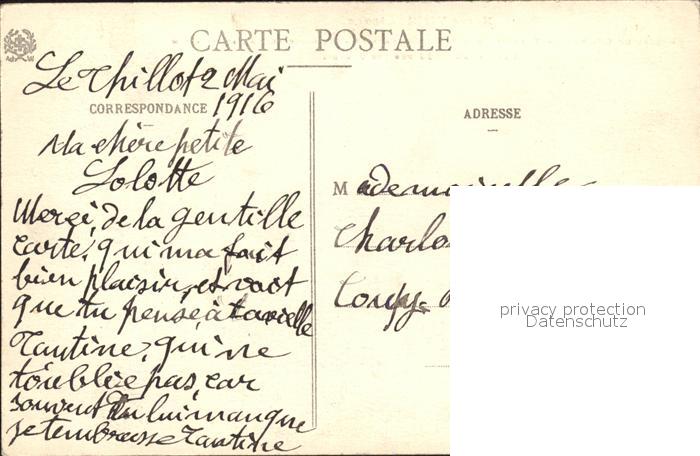 CARTE POSTALE
Le Thillot 2 Mai
1916
CORRESPONDANCE
Ma chère petite
Lolotte
Merci, de la gentille
carte, qui ma fait
bien plaisir, et voit
que tu pense, à ta vielle
Tantine, qui ne
t'oublie pas, car
souvent Tu lui manque
je tembrasse Tantine
ADRESSE
Mademoiselle
Charlo
privacy protection
Datenschutz